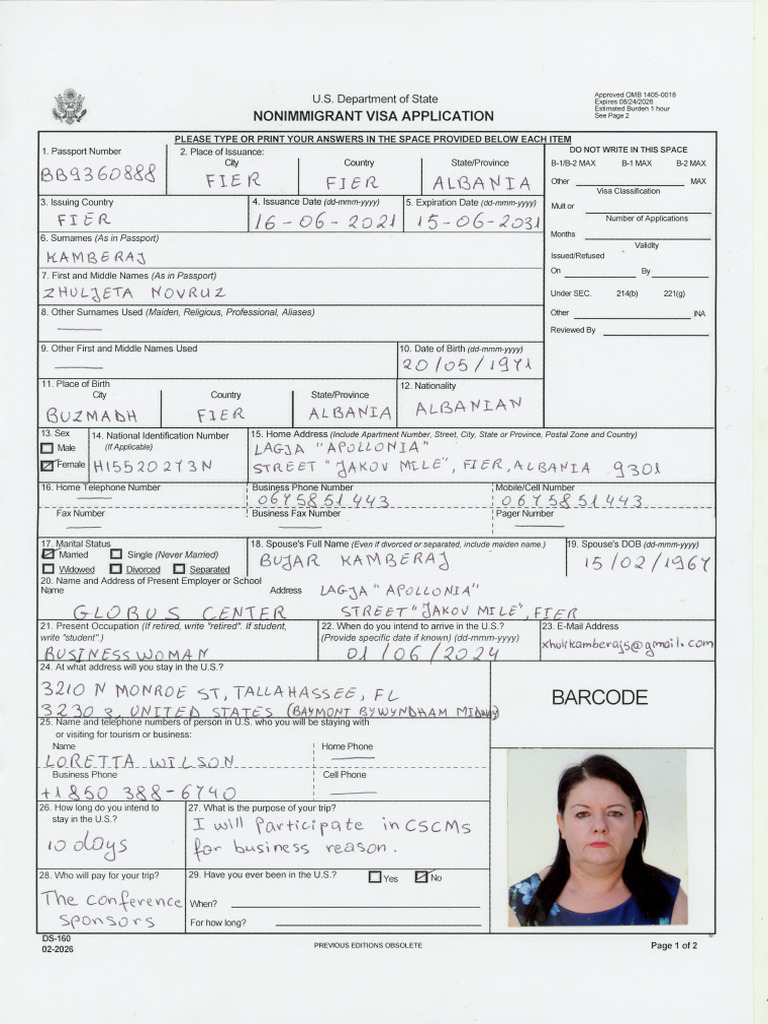 U.S. Department of State
NONIMMIGRANT VISA APPLICATION
Approved OMB 1405-0018
Expires 08/24/2026
Estimated Burden 1 hour
See Page 2
PLEASE TYPE OR PRINT YOUR ANSWERS IN THE SPACE PROVIDED BELOW EACH ITEM
1. Passport Number
BB9360888
2. Place of Issuance:
City Country State/Province
FIER FIER ALBANIA
DO NOT WRITE IN THIS SPACE
B-1/B-2 MAX B-1 MAX B-2 MAX
Other MAX
Visa Classification
Mult or
Number of Applications
Months
Validity
Issued/Refused
On By
Under SEC. 214(b) 221(g)
Other INA
Reviewed By
3. Issuing Country
FIER
4. Issuance Date (dd-mmm-yyyy)
16-06-2021
5. Expiration Date (dd-mmm-yyyy)
15-06-2031
6. Surnames (As in Passport)
KAMBERAJ
7. First and Middle Names (As in Passport)
ZHULJETA NOVRUZ
8. Other Surnames Used (Maiden, Religious, Professional, Aliases)
9. Other First and Middle Names Used
10. Date of Birth (dd-mmm-yyyy)
20/05/1971
11. Place of Birth
City Country State/Province
BUZMADH FIER ALBANIA
12. Nationality
ALBANIAN
13. Sex
Male
Female
14. National Identification Number
(If Applicable)
H15520273N
15. Home Address (Include Apartment Number, Street, City, State or Province, Postal Zone and Country)
LAGJA "APOLLONIA"
STREET "JAKOV MILE", FIER, ALBANIA 9301
16. Home Telephone Number
Business Phone Number
0675851443
Mobile/Cell Number
0675851443
Fax Number
Business Fax Number
Pager Number
17. Marital Status
Married Single (Never Married)
Widowed Divorced Separated
18. Spouse's Full Name (Even if divorced or separated, include maiden name.)
BUJAR KAMBERAJ
19. Spouse's DOB (dd-mmm-yyyy)
15/02/1967
20. Name and Address of Present Employer or School
Name Address
GLOBUS CENTER
LAGJA "APOLLONIA"
STREET "JAKOV MILE", FIER
21. Present Occupation (If retired, write "retired". If student,
write "student".)
BUSINESSWOMAN
22. When do you intend to arrive in the U.S.?
(Provide specific date if known) (dd-mmm-yyyy)
01/06/2024
23. E-Mail Address
xhulikamberajs@gmail.com
24. At what address will you stay in the U.S.?
3210 N MONROE ST, TALLAHASSEE, FL
3230 3, UNITED STATES (BAYMONT BY WYNDHAM MIDWAY)
BARCODE
25. Name and telephone numbers of person in U.S. who you will be staying with
or visiting for tourism or business:
Name
LORETTA WILSON
Home Phone
Business Phone
+1 850 388-6740
Cell Phone
26. How long do you intend to
stay in the U.S.?
10 days
27. What is the purpose of your trip?
I will Participate in CSCMs
for business reason.
28. Who will pay for your trip?
The conference
sponsors
29. Have you ever been in the U.S.?
Yes No
When?
For how long?
DS-160
02-2026
PREVIOUS EDITIONS OBSOLETE
Page 1 of 2